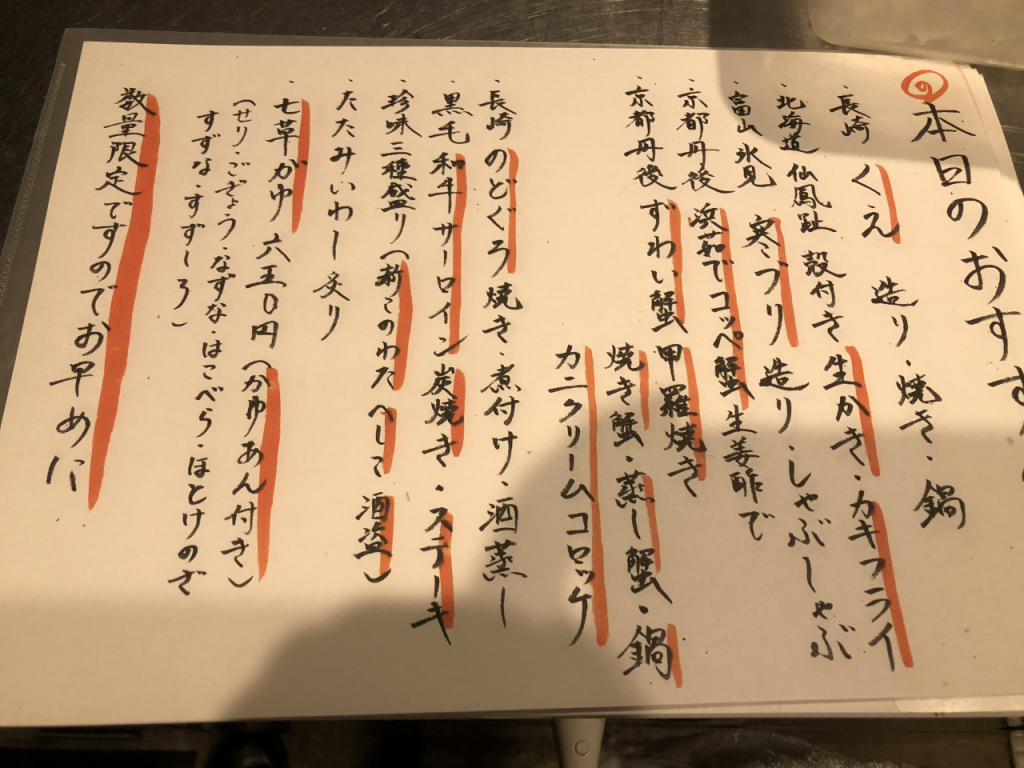 の 本日のおすす
長崎 くえ 造り・焼き・鍋
・北海道仙鳳趾 殻付き生かき・カキフライ
・富山氷見 寒ブリ 造り・しゃぶしゃぶ
・京都丹後 浜茹でコッペ蟹生姜酢で
・京都丹後 ずわい蟹 甲羅焼き
焼き蟹・蒸し蟹・鍋
カニクリームコロッケ
・長崎のどぐろ焼き・煮付け・酒蒸し
・黒毛和牛サーロイン炭焼き・ステーキ
・珍味三種盛り(新このわた へしこ 酒盗)
・たたみいわし炙り
・七草がゆ 六五〇円(かゆあん付き)
(せり・ごぎょう・なずな・はこべら・ほとけのざ
すずな・すずしろ)
数量限定ですのでお早めに